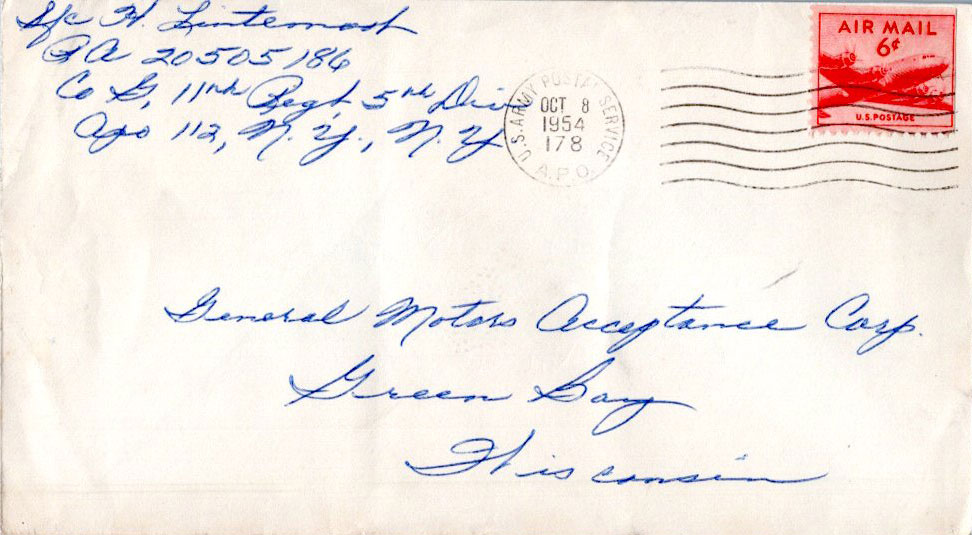 Sfc H. Linternash
RA 20505186
Co G, 11nth Regt 5nth Div
Apo 112, N. Y., N. Y
U.S. ARMY POSTAL SERVICE
OCT 8
1954
178
A.P.O.
AIR MAIL
6¢
U.S. POSTAGE
General Motors Acceptance Corp.
Green Bay
Wisconsin